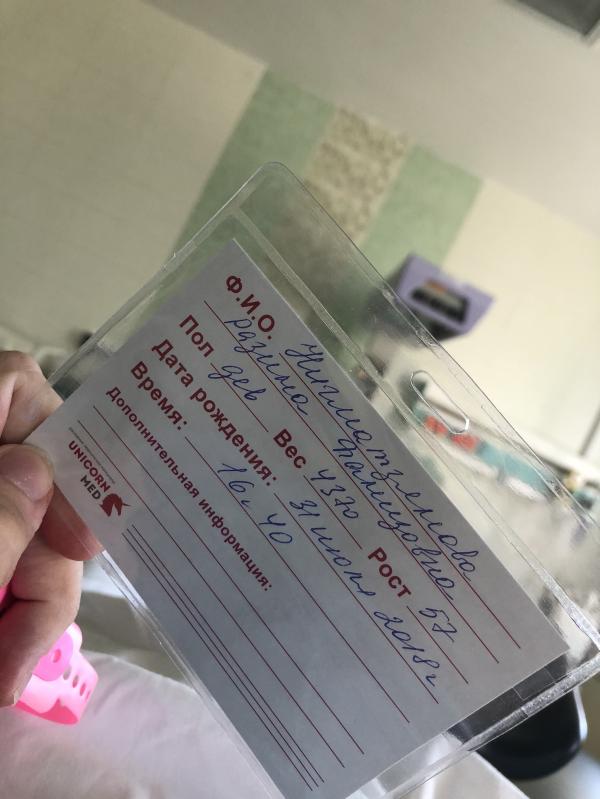 Ф.И.О. Нигматзянова
Разина Фанизовна
Пол дев Вес 4370 Рост 57
Дата рождения: 31 июля 2018г
Время: 16 ч 40
Дополнительная информация:
UNICORN
MED